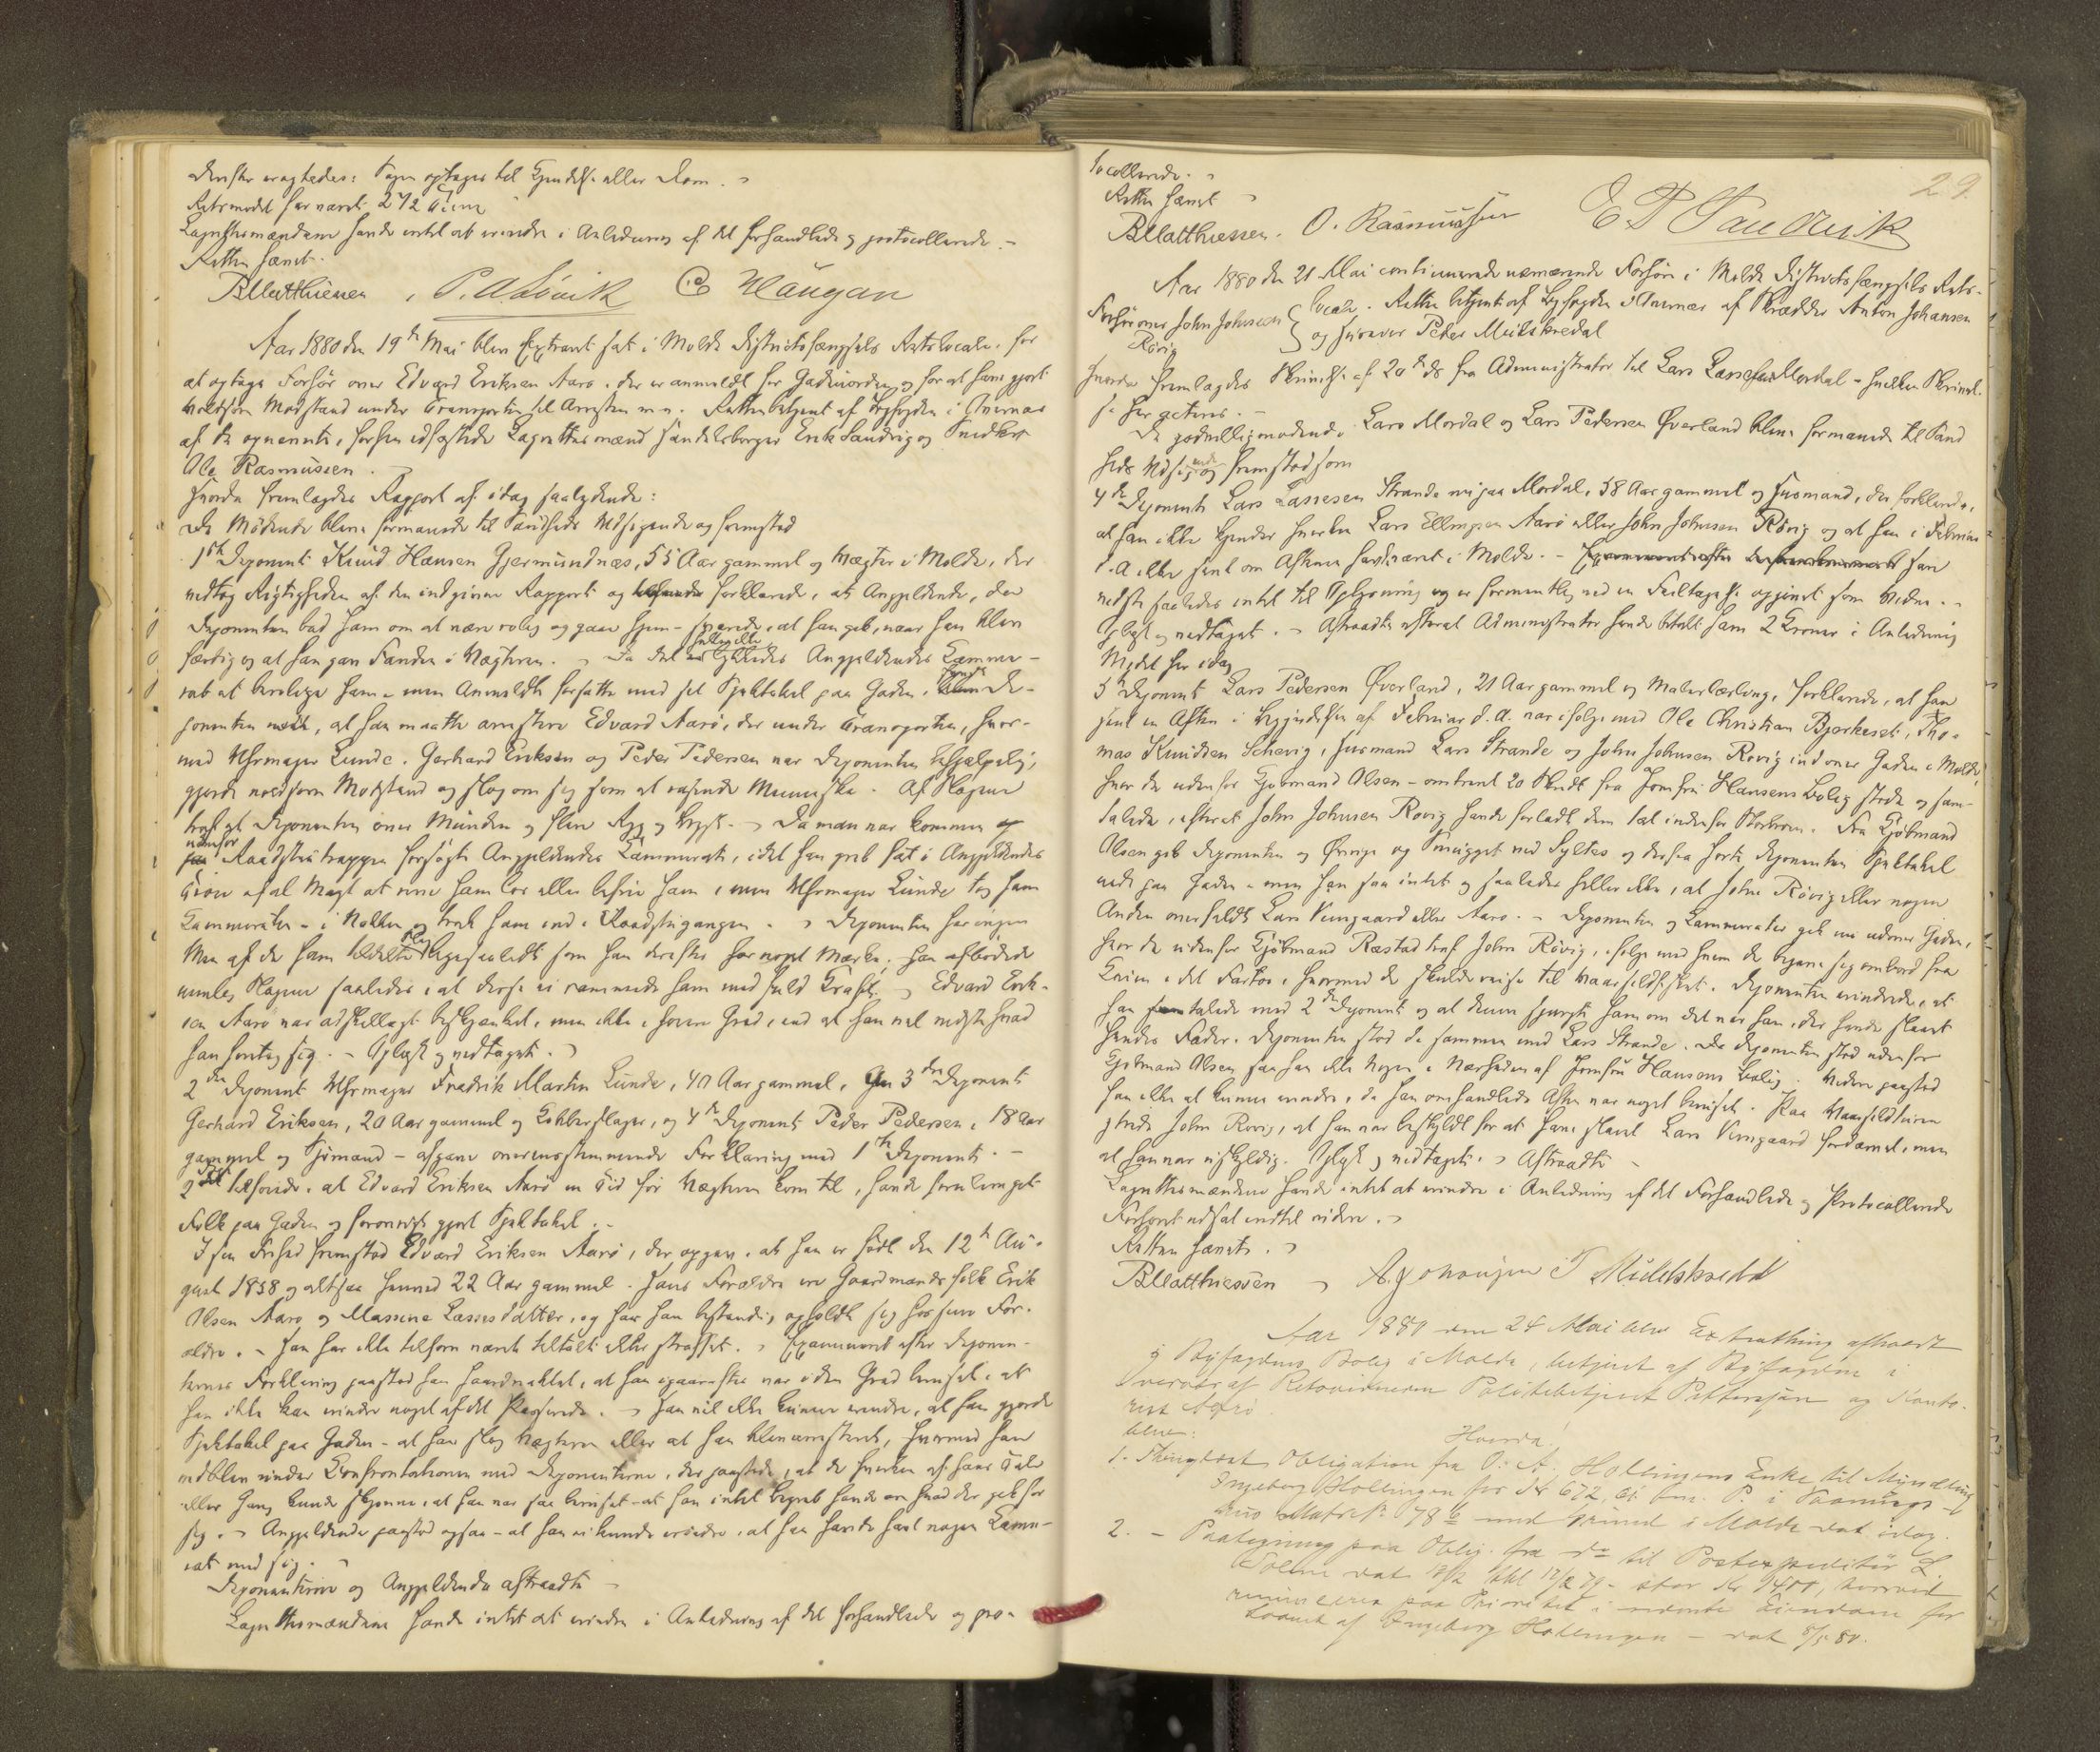 derefter eragtedes: Sagen optages til Kjendelse eller Dom.
Retsmødet har varet 2 1/2 Time
Lagrettesmændene havde intet at erindre i Anledning af det forhandlede og protocollerede. -
Retten hævet.
BMatthiessen, P. A. Sövik C Haugan
Aar 1880 den 19de Mai blev Extraret sat i Molde Districtsfængsels Retslocale, for
at optage Forhör over Edvard Eriksen Aarö, der er anmeldt for Gadeuorden og for at have gjort
voldsom Modstand under Transporten til Arresten m. v. Retten betjent af Byfogden i Overvær
af de opnævnte, forhen edfæstede Lagrettesmænd Handelsborger Erik Sandvig og Snedker
Ole Rasmussen.
Hvorda fremlagdes Rapport af idag saalydende:
De Mödende bleve formanede til Sandheds Udsigende og fremstod
1ste Deponent Knud Hansen Gjermundnæs, 55 Aar gammel og Vægter i Molde, der
vedtog Rigtigheden af den indgivne Rapport og forklarede, at Angjeldende, da
Deponenten bad ham om at være rolig og gaae hjem - svarede, at han gik, naar han blev
færdig og at han gav Fanden i Vægteren. - Da det heller ikke lykkedes Angjeldendes Kamme-
rat at berolige ham - men Anmeldte fortsatte med sit Spektakel paa Gaden, De-
ponenten, at han maatte arrestere Edvard Aarö, der under Transporten, hvor-
ved Uhrmager Lunde, Gerhard Eriksen og Peder Pedersen var Deponenten behjælpelig,
gjorde voldsom Modstand og slog om sig som et rasende Menneske. Af Slagene
traf et Deponenten over Munden og flere Ryg og Bryst. - Da man var kommen
udenfor Raadstutrappen forsøgte Angjeldendes Kammerat, idet han greb fat i Angjeldendes
Tröie af al Magt at rive ham los eller befrie ham, men Uhrmager Lunde tog ham
Kammeraten - i Nakken og trak ham ind i Raadstugangen. - Deponenten har ingen
Men af de ham tildelte Slag ligesaalidt som han derefter har noget Mærke; han afbødede
nemlig Slagene saaledes, at disse ei rammede ham med fuld Kraft. - Edvard Erik-
sen Aarö var adskilligt beskjænket, men ikke i höiere Grad, end at han vel vidste hvad
han foretog sig. - Oplæst og vedtaget. -
2den Deponent Uhrmager Fredrik Martin Lunde, 40 Aar gammel, 3die Deponent
Gerhard Eriksen, 20 Aar gammel og Kobberslager, og 4de Deponent Peder Pedersen, 18 Aar
gammel og Sjömand - afgave overensstemmende Forklaring med 1ste Deponent. -
2den tilföiede, at Edvard Eriksen Aarö en Tid för Vægteren kom til, havde forulempet
Folk paa Gaden og forövrigt gjort Spektakel. -
I sin Frihed fremstod Edvard Eriksen Aarö, der opgav, at han er födt den 12te Au-
gust 1858 og altsaa henved 22 Aar gammel. Hans Forældre ere Gaardmandsfolk Erik
Olsen Aarö og Massine Lassesdatter, og har han bestandig opholdt sig hos sine For-
ældre. - Han har ikke tilforn været tiltalt eller straffet. - Examineret efter Deponen-
ternes Forklaring paastod han haardnakket, at han igaaraftes var i den Grad beruset, at
han ikke kan erindre noget af det Passerede. - Han vil ikke kunne erindre, at han gjorde
Spektakel paa Gaden - at han slog Vægteren eller at han blev arresteret, hvorved han
vedblev under Confrontationen med Deponenterne, der paastode, at de hverken af hans Tale
eller Gang kunde skjönne, at han var saa beruset - at han intet begreb havde om hvad der gik for
sig. - Angjeldende paastod ogsaa - at han ei kunde erindre, at han havde havt nogen Kamme-
rat med sig. -
Deponenterne og Angjeldende aftraadte -
Lagrettesmændene havde intet at erindre i Anledning af det forhandlede og pro-
29.
tocollerede. -
Retten hævet -
BMatthiessen. O. Rasmussen E P Sandvik
Aar 1880 den 21 Mai continuerede nærværende Forhör i Molde Districtsfængsels Rets-
locale. Retten betjent af Byfogden i Overvær af Skrædder Anton Johansen
og Peder Meidskredal
Forhör over John Johnsen
Rövig
Hvorda fremlagdes Skrivelse af 20de ds fra Administrator til Lars Lassesen Mordal - hvilken Skrivel-
se her acteres. -
De godvilligmödende Lars Mordal og Lars Pedersen Överland bleve formanede til Sand
heds Udsigende og fremstod som
4de Deponent Lars Lassesen Strande nu paa Mordal, 38 Aar gammel og Huusmand, der forklarede,
at han ikke kjender hverken Lars Ellingsen Aarö eller John Johnsen Rövig og at han i Februar
d. A. ikke seent om Aftenen havde været i Molde. - han
vidste saaledes intet til Oplysning og er formentlig ved en Feiltagelse opgivet som Vidne. -
Oplæst og vedtaget. - Aftraadte efterat Administrator havde betalt ham 2 Kroner i Anledning
Mödet her idag
5te Deponent Lars Pedersen Överland, 21 Aar gammel og Malerlærling, forklarede, at han
seent en Aften i Begyndelsen af Februar d. A. var ifölge med Ole Christian Bjerkeset, Tho-
mas Knudsen Schevig, Huusmand Lars Strande og John Johnsen Rovig indover Gaden i Molde,
hvor de udenfor Kjöbmand Olsen - omtrent 20 Skridt fra Jomfru Hansens Bolig stode og sam-
talede, efterat John Johnsen Rovig havde forladt dem lidt indenfor Storbroen. Fra Kjöbmand
Olsen gik Deponenten og Övrige op Smugget ved Syltes og derfra hörte Deponenten Spektakel
nede paa Gaden - men han saa intet og saaledes heller ikke, at John Rövig eller nogen
Anden overfaldt Lars Vemgaard eller Aarö. - Deponenten og Kammerater gik nu udover Gaden,
hvor de udenfor Kjöbmand Ræstad traf John Rövig, ifölge med hvem de begave sig ombord fra
Kaien i det Fartöi, hvormed de skulde reise til Vaarsildfisket. Deponenten erindrede, at
han talede med 2den Deponent og at denne spurgte ham om det var ham, der havde slaaet
hendes Fader. Deponenten stod da sammen med Lars Strande. Da Deponenten stod udenfor
Kjöbmand Olsen saa han ikke Nogen i Nærheden af Jomfru Hansens Bolig. Videre paastod
han ikke at kunne erindre, da han omhandlede Aften var noget beruset. Paa Vaarsildturen
John Rovig, at han var beskyldt for at have slaaet Lars Vemgaard fordærvet, men
at han var uskyldig. Oplæst og vedtaget. - Aftraadte -
Lagrettesmændene havde intet at erindre i Anledning af det Forhandlede og Protocollerede
Forhöret udsat indtil videre. -
Retten hævet. -
BMatthiessen - A. Johansen P Meidskredal
Aar 1880 den 24 Mai blev Extrathing afholdt
i Byfogdens Bolig i Molde, betjent af Byfogden i
Overvær af Retsvidnerne Politibetjent Pettersen og Konto-
rist Aarö
Hvorda
blev:
1. Thinglæst Obligation fra O. A. Hollingens Enke til Myndling
Ingeborg Hollingen for Kr 672, i
Huus Matr. No 78 b med Grund i Molde dat idag.
2. - Paategning paa Oblig. fra do til Postexpeditör L.
dat 12/2 79 - stor Kr 1400, hvorved
paa Prioritet i nævnte Eiendom for
Laanet af Ingeborg Hollingen - dat 8/5 80.